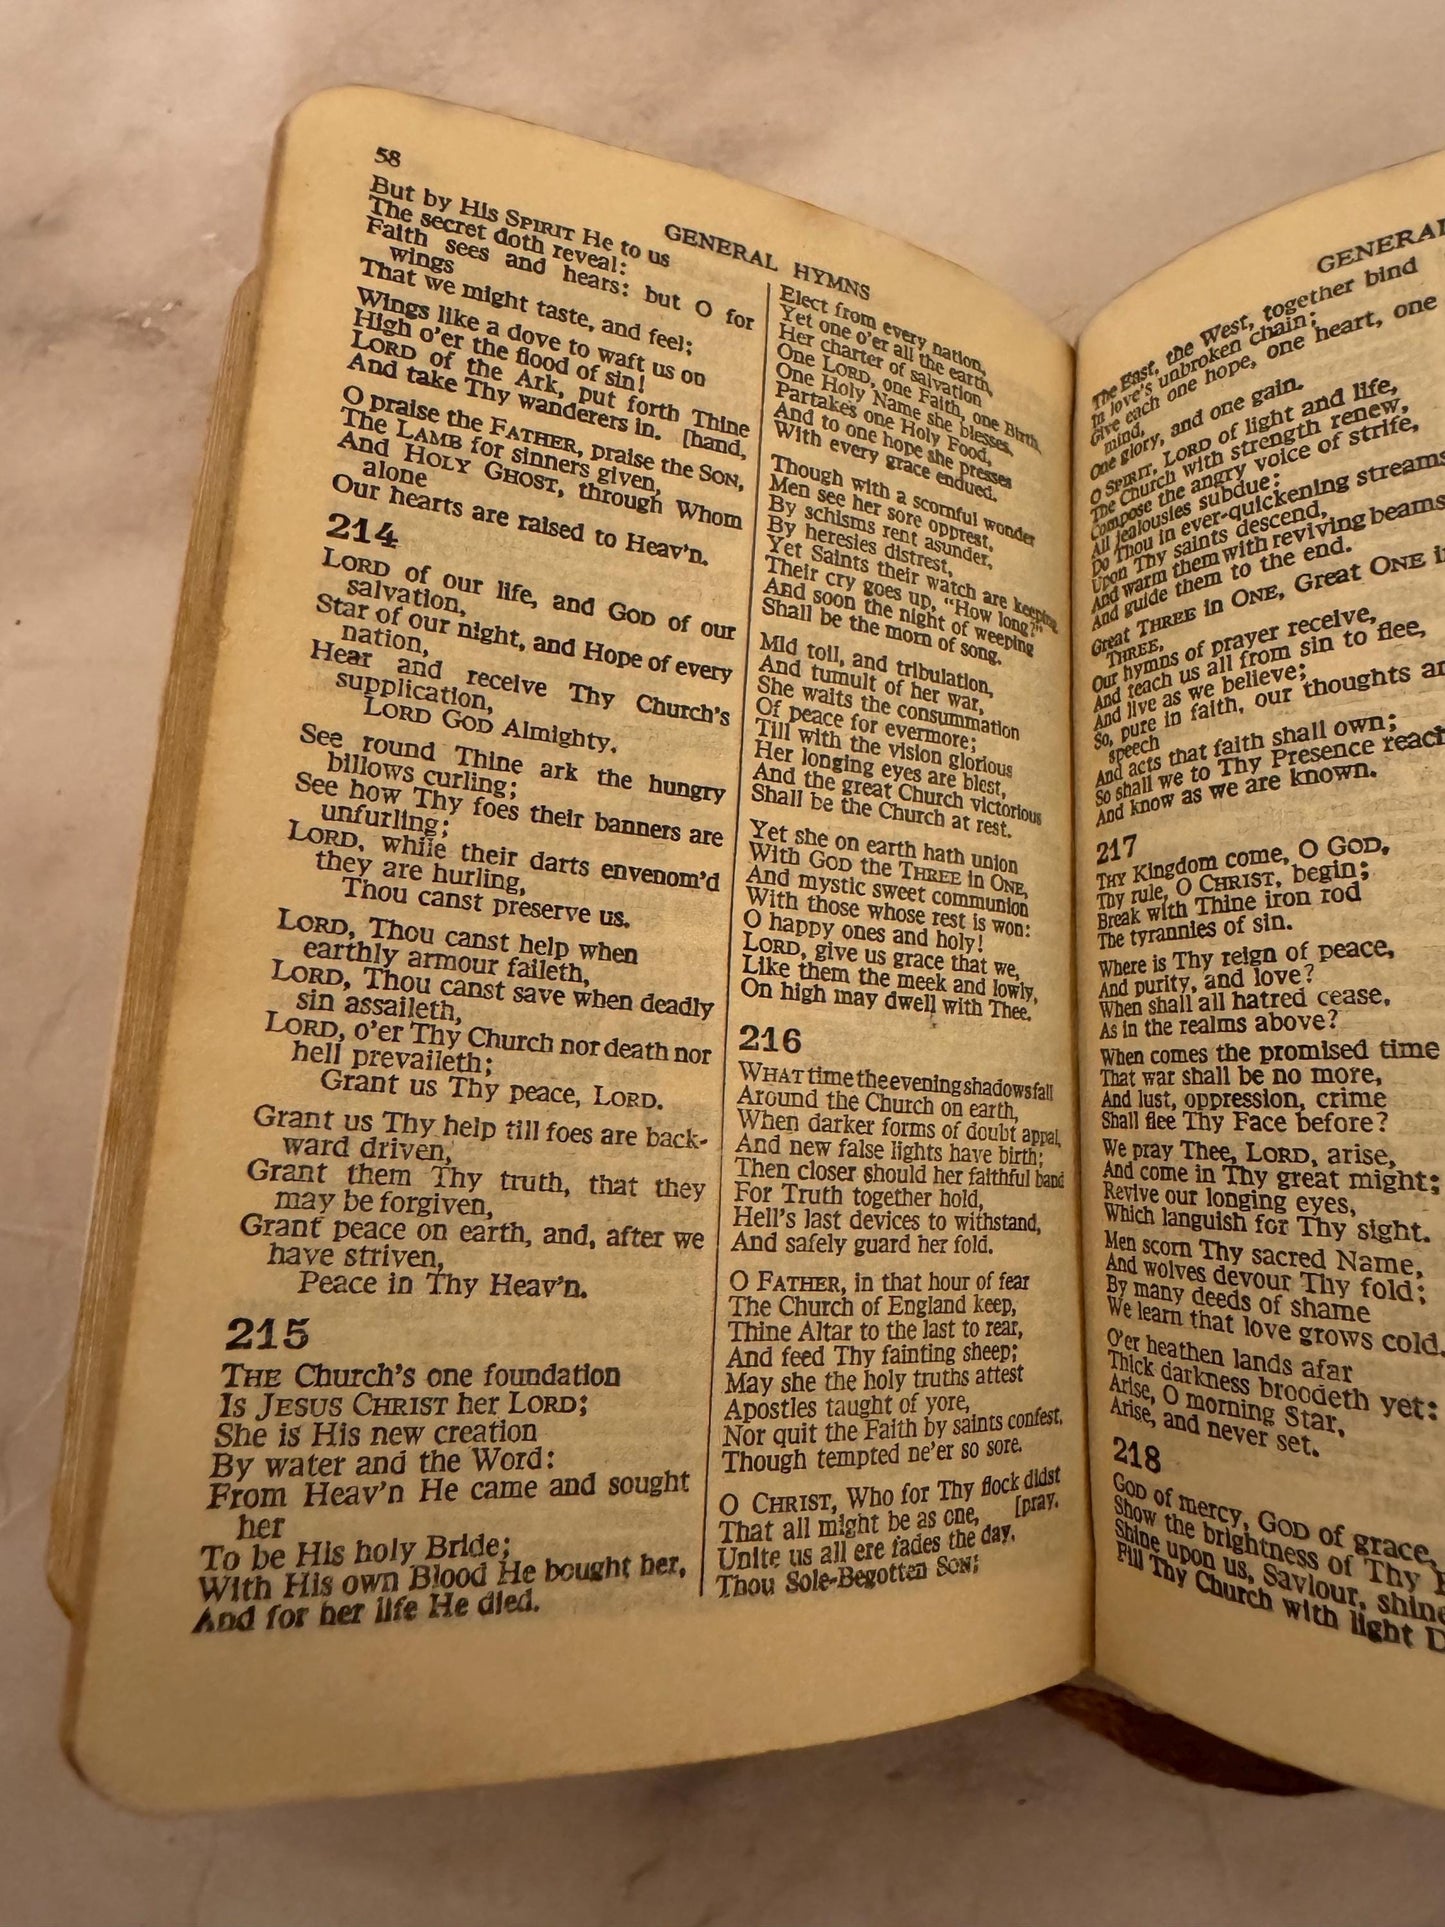 58
GENERAL HYMNS
But by His SPIRIT He to us
The secret doth reveal:
Faith sees and hears: but O for
wings
That we might taste, and feel;
Wings like a dove to waft us on
High o'er the flood of sin!
LORD of the Ark, put forth Thine
And take Thy wanderers in. [hand,
O praise the FATHER, praise the SON,
The LAMB for sinners given,
And HOLY GHOST, through Whom
alone
Our hearts are raised to Heav'n.
214
LORD of our life, and GOD of our
salvation,
Star of our night, and Hope of every
nation,
Hear and receive Thy Church's
supplication,
LORD GOD Almighty.
See round Thine ark the hungry
billows curling;
See how Thy foes their banners are
unfurling;
LORD, while their darts envenom'd
they are hurling,
Thou canst preserve us.
LORD, Thou canst help when
earthly armour faileth,
LORD, Thou canst save when deadly
sin assaileth,
LORD, o'er Thy Church nor death nor
hell prevaileth;
Grant us Thy peace, LORD.
Grant us Thy help till foes are back-
ward driven,
Grant them Thy truth, that they
may be forgiven,
Grant peace on earth, and, after we
have striven,
Peace in Thy Heav'n.
215
THE Church's one foundation
Is JESUS CHRIST her LORD;
She is His new creation
By water and the Word:
From Heav'n He came and sought
her
To be His holy Bride;
With His own Blood He bought her,
And for her life He died.
Elect from every nation,
Yet one o'er all the earth,
Her charter of salvation
One LORD, one Faith, one Birth,
One Holy Name she blesses,
Partakes one Holy Food,
And to one hope she presses
With every grace endued.
Though with a scornful wonder
Men see her sore opprest,
By schisms rent asunder,
By heresies distrest,
Yet Saints their watch are keeping,
Their cry goes up, "How long?"
And soon the night of weeping
Shall be the morn of song.
Mid toil, and tribulation,
And tumult of her war,
She waits the consummation
Of peace for evermore;
Till with the vision glorious
Her longing eyes are blest,
And the great Church victorious
Shall be the Church at rest.
Yet she on earth hath union
With GOD the THREE in ONE,
And mystic sweet communion
With those whose rest is won:
O happy ones and holy!
LORD, give us grace that we,
Like them the meek and lowly,
On high may dwell with Thee.
216
WHAT time the evening shadows fall
Around the Church on earth,
When darker forms of doubt appal,
And new false lights have birth;
Then closer should her faithful band
For Truth together hold,
Hell's last devices to withstand,
And safely guard her fold.
O FATHER, in that hour of fear
The Church of England keep,
Thine Altar to the last to rear,
And feed Thy fainting sheep;
May she the holy truths attest
Apostles taught of yore,
Nor quit the Faith by saints confest,
Though tempted ne'er so sore.
O CHRIST, Who for Thy flock didst
That all might be as one, [pray,
Unite us all ere fades the day,
Thou Sole-Begotten SON;
GENERAL
The East, the West, together bind
In love's unbroken chain;
Give each one hope, one heart, one
mind,
One glory, and one gain.
O SPIRIT, LORD of light and life,
The Church with strength renew,
Compose the angry voice of strife,
All jealousies subdue;
Do Thou in ever-quickening streams
Upon Thy saints descend,
And warm them with reviving beams
And guide them to the end.
Great THREE in ONE, Great ONE in
THREE,
Our hymns of prayer receive,
And teach us all from sin to flee,
And live as we believe;
So, pure in faith, our thoughts and
speech
And acts that faith shall own;
So shall we to Thy Presence reach
And know as we are known.
217
THY Kingdom come, O GOD,
Thy rule, O CHRIST, begin;
Break with Thine iron rod
The tyrannies of sin.
Where is Thy reign of peace,
And purity, and love?
When shall all hatred cease,
As in the realms above?
When comes the promised time
That war shall be no more,
And lust, oppression, crime
Shall flee Thy Face before?
We pray Thee, LORD, arise,
And come in Thy great might;
Revive our longing eyes,
Which languish for Thy sight.
Men scorn Thy sacred Name,
And wolves devour Thy fold;
By many deeds of shame
We learn that love grows cold.
O'er heathen lands afar
Thick darkness broodeth yet:
Arise, O morning Star,
Arise, and never set.
218
GOD of mercy, GOD of grace,
Show the brightness of Thy
Shine upon us, Saviour, shine
Fill Thy Church with light